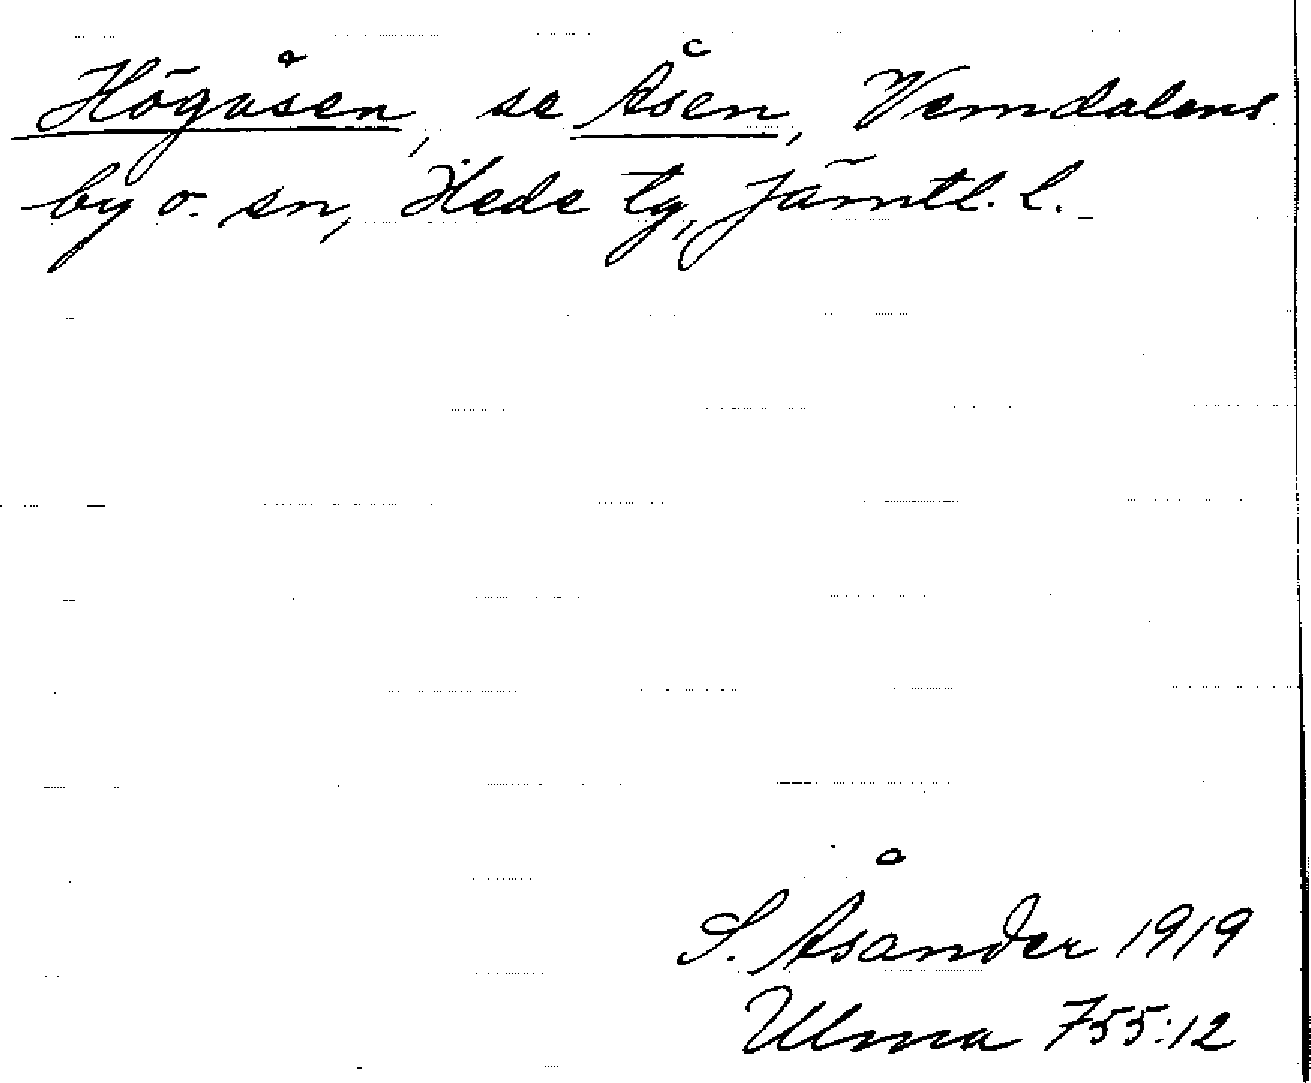 Högåsen, se Åsen, Vemdalens
by o. sn, Hede tg, Jämtl. l.
S. Åsander 1919
Ulma 755:12